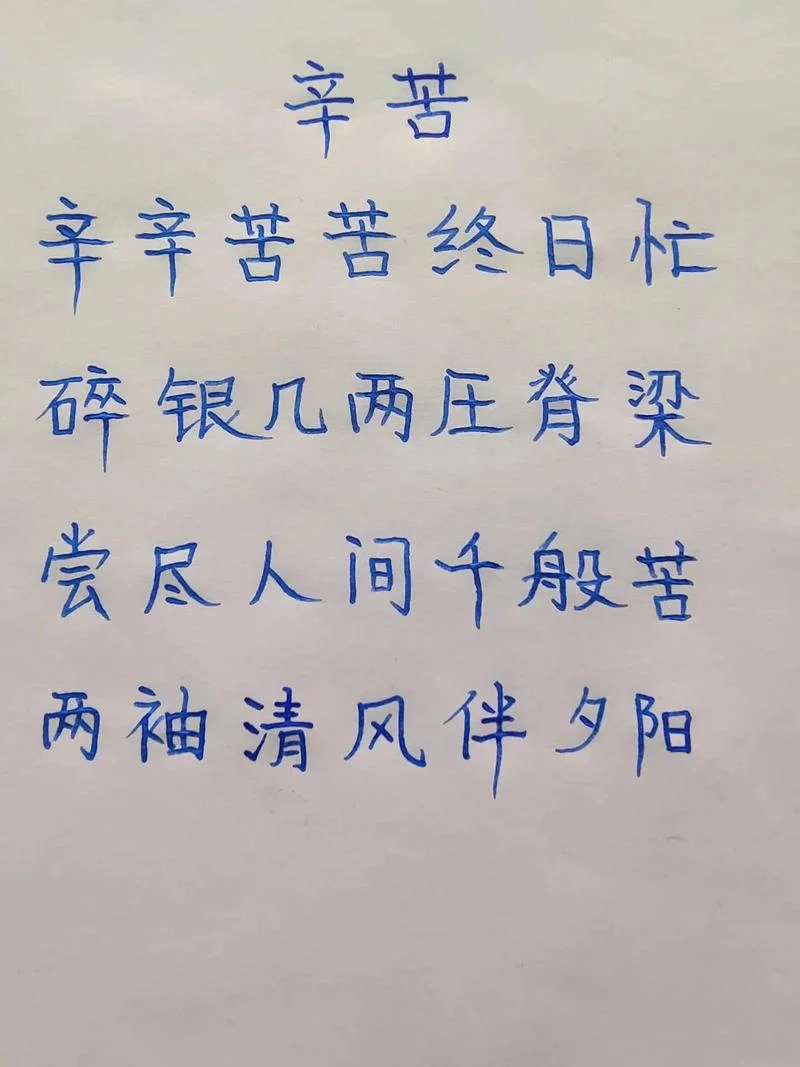 辛苦
辛辛苦苦终日忙
碎银几两压脊梁
尝尽人间千般苦
两袖清风伴夕阳